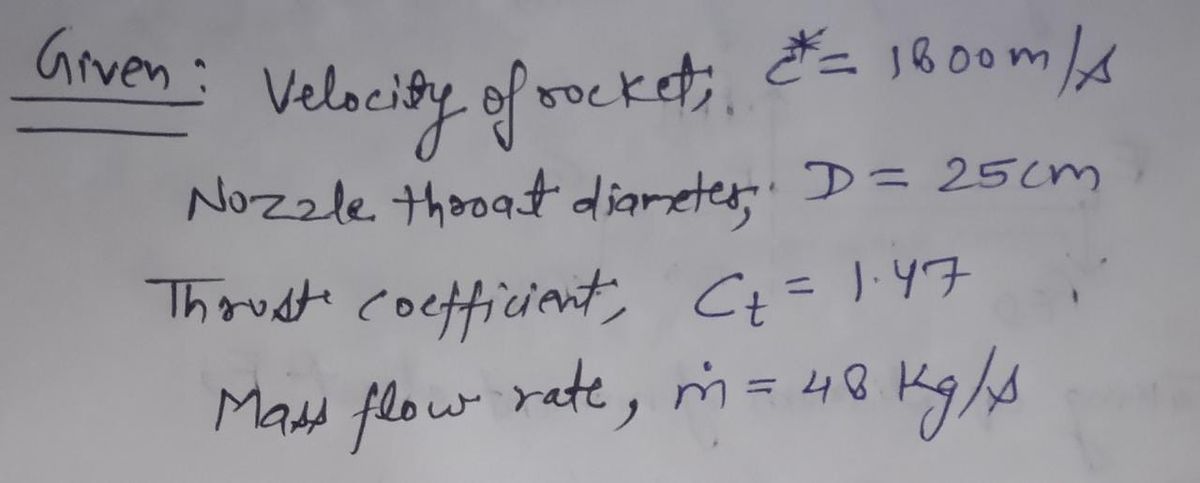 Given: Velocity of rocket, c* = 1800 m/s
Nozzle throat diameter, D = 25cm
Thrust coefficient, Ct = 1.47
Mass flow rate, ṁ = 48 Kg/s